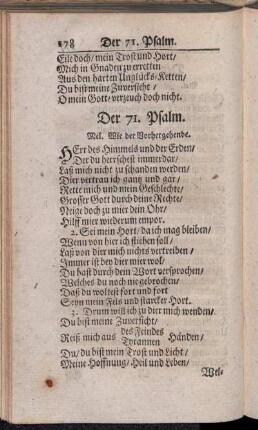 178 Der 71. Psalm.
Eile doch/ mein Trost und Hort/
Mich in Gnaden zu erretten
Aus den harten Unglücks-Ketten/
Du bist meine Zuversicht/
O mein Gott/ verzeuch doch nicht.
Der 71. Psalm.
Mel. Wie der Vorhergehende.
HErr des Himmels und der Erden/
Der du herrschest immerdar/
Laß mich nicht zu schanden werden/
Dier vertrau ich ganz und gar/
Rette mich und mein Geschlechte/
Grosser Gott durch deine Rechte/
Neige doch zu mier dein Ohr/
Hilff mier wiederum empor.
2. Sei mein Hort/ da ich mag bleiben/
Wenn von hier ich fliehen soll/
Laß von dier mich nichts vertreiben/
Immer ist bey dier mier wol/
Du hast durch dein Wort versprochen/
Welches du noch nie gebrochen/
Daß du woltest fort und fort
Seyn mein Fels und starcker Hort.
3. Drum will ich zu dier mich wenden/
Du bist meine Zuversicht/
Reiß mich aus des Feindes Händen/
Tyrannen
Du/ du bist mein Trost und Licht/
Meine Hoffnung/ Heil und Leben/
Wel-